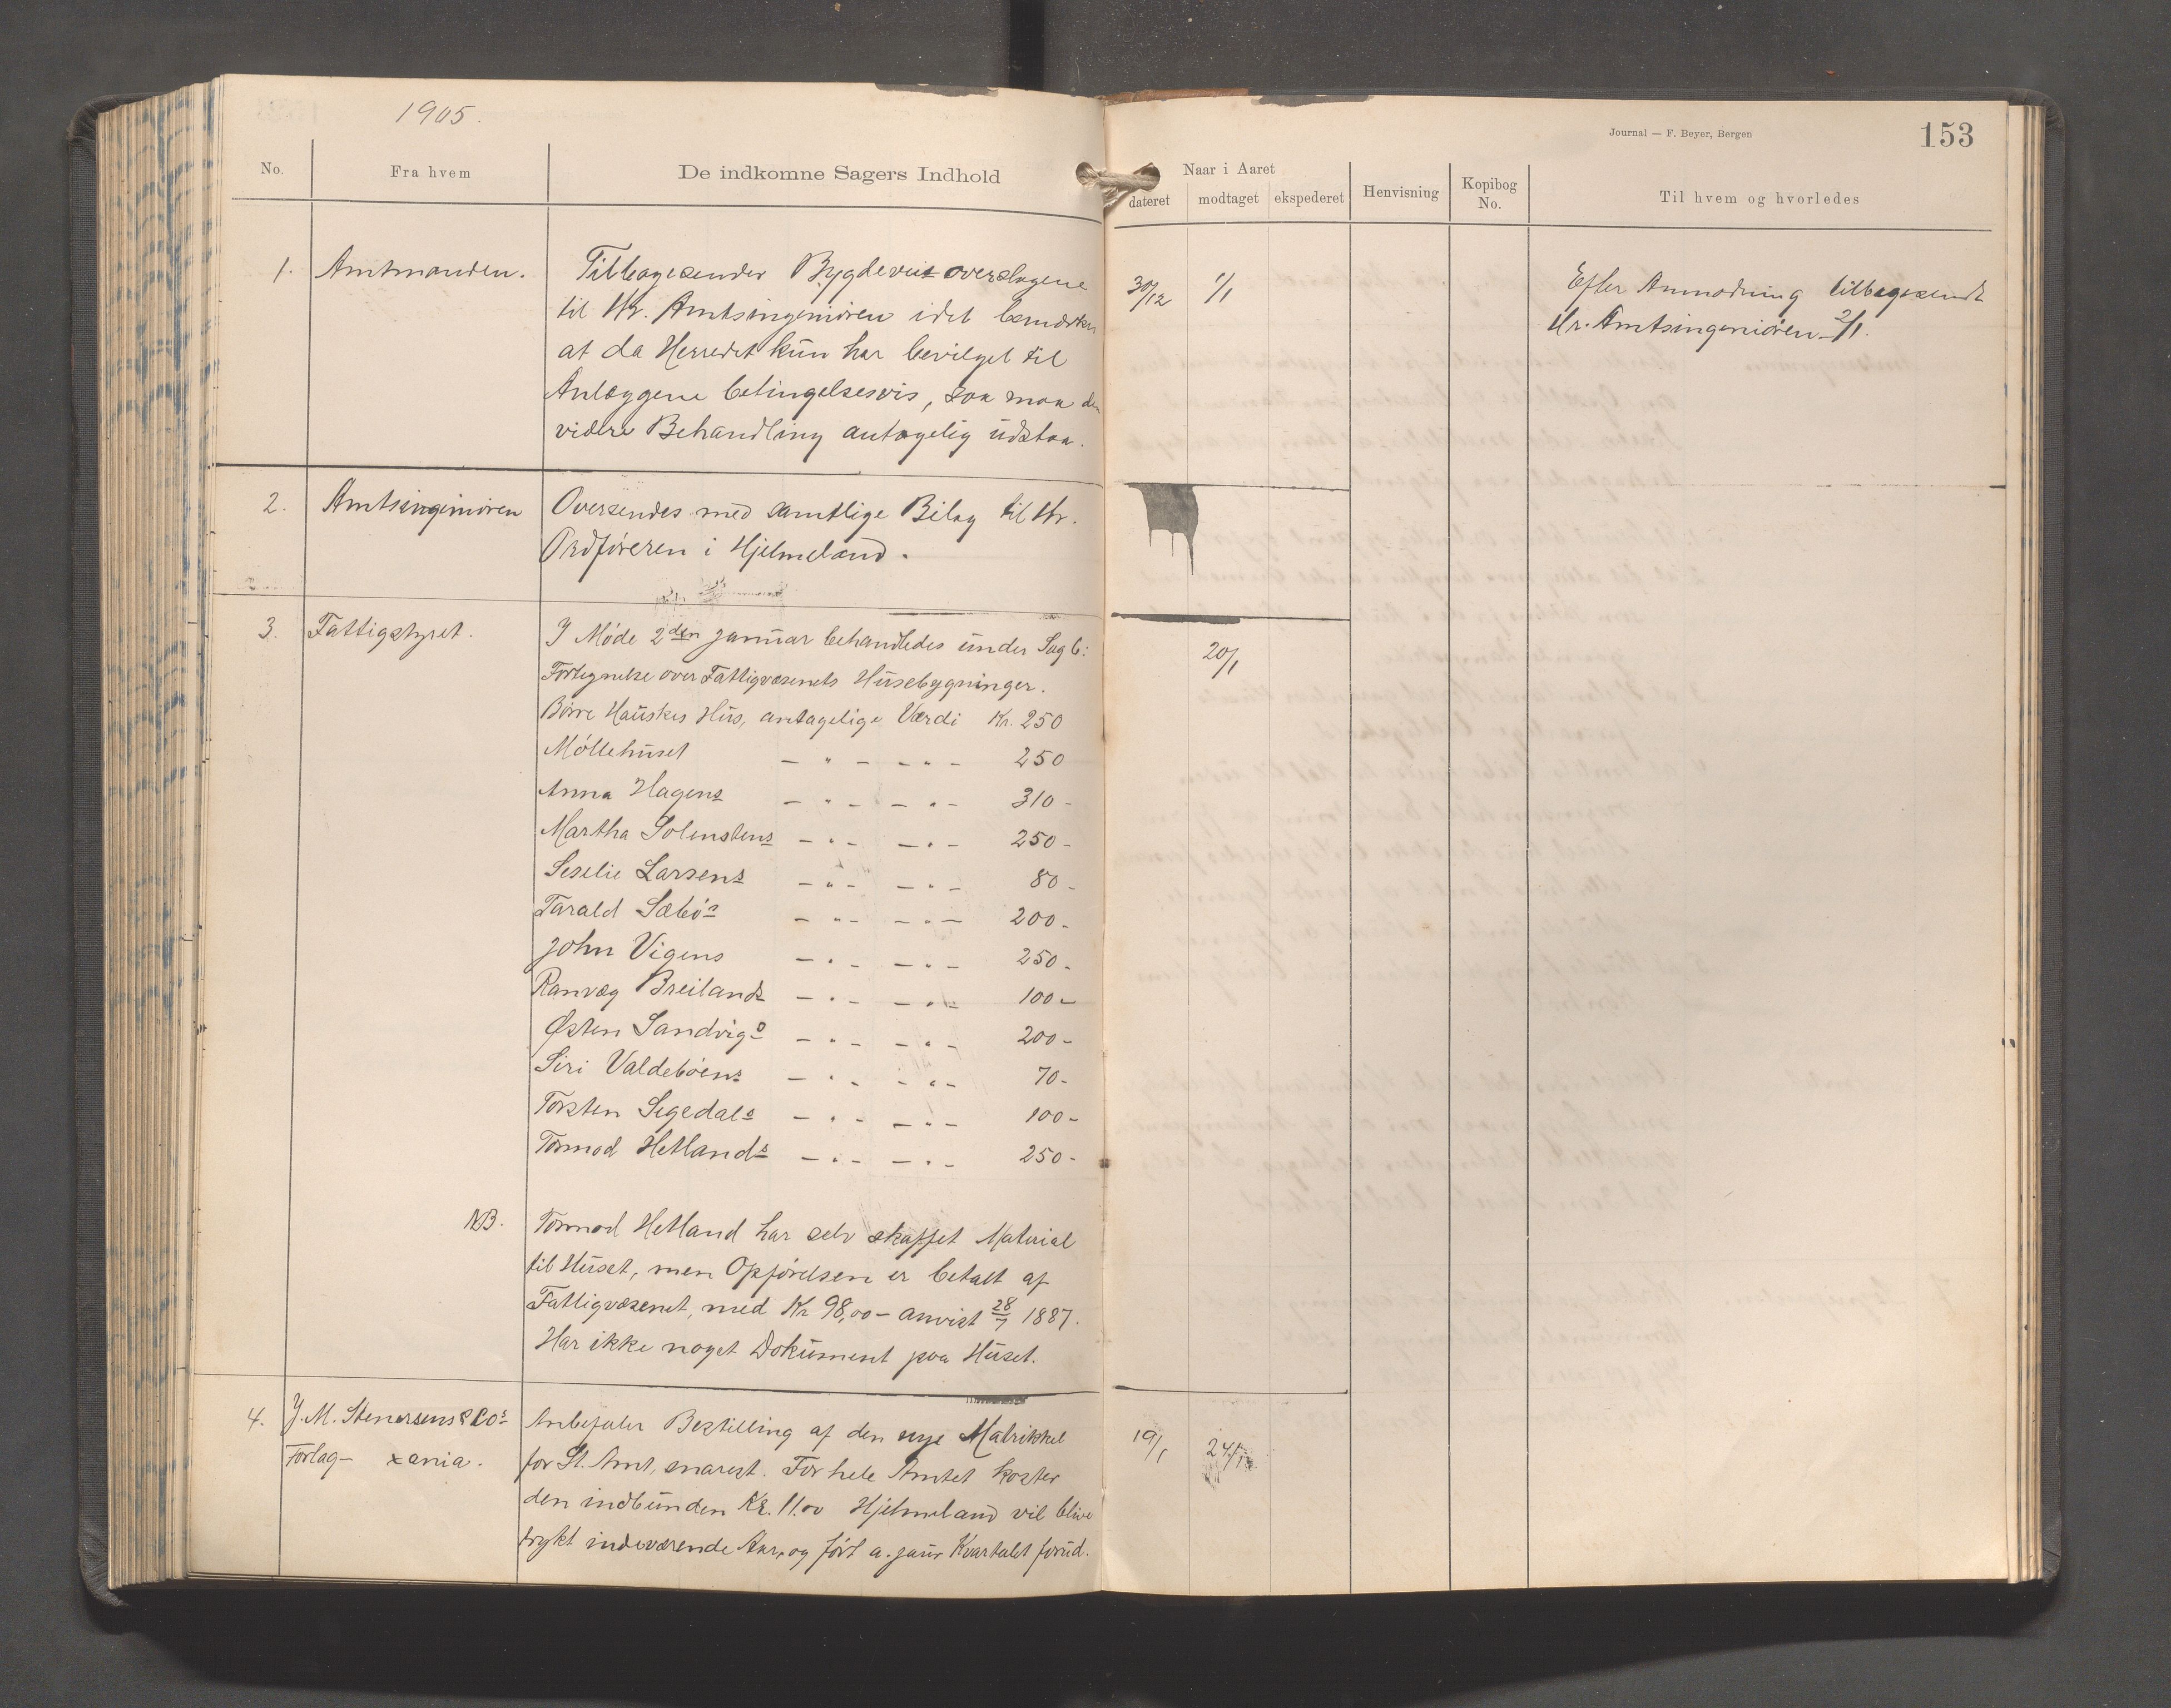 1905.
No.
Fra hvem
De indkomne Sagers Indhold
1. Amtmanden.
Tilbagesender Bygdeveisoverslagene
til Hr. Amtsingeniören idet bemærkes
at da Herredet kun har bevilget til
Anlæggene betingelsesvis, saa maa den
videre Behandling antagelig udstaa.
2. Amtsingeniören
Oversendes med samtlige Bilag til Hr.
Ordföreren i Hjelmeland.
3. Fattigstyret.
I Möde 2den januar behandledes under Sag 6:
Fortegnelse over Fattigvæsenets Husebygninger.
Börre Hauskes Hus, antagelige Værdi Kr. 250
Möllehuset — " — — " — 250
Anna Hagens — " — — " — 310 -
Martha Solenstens — " — — " — 250 -
Seselie Larsens — " — — " — 80 -
Tarald Sæbö's — " — — " — 200 -
John Vigens — " — — " — 250 -
Ranvæg Breilands — " — — " — 100 -
Østen Sandvigs — " — — " — 200 -
Siri Valdeböens — " — — " — 70 -
Torsten Segedals — " — — " — 100 -
Tormod Hetlands — " — — " — 250 -
NB. Tormod Hetland har selv skaffet Material
til Huset, men Opförelsen er betalt af
Fattigvæsenet, med Kr 98,00 - anvist 28/7 1887.
Har ikke noget Dokument paa Huset.
4. J. M. Stenersens & Co's
Forlag - xania.
Anbefaler Bestilling af den nye Matrikkel
for St. Amt, snarest. For hele Amtet koster
den indbunden Kr. 11.00 Hjelmeland vil blive
trykt indeværende Aar, og fört a. jour Kvartalet forud.
Journal — F. Beyer, Bergen
153
Naar i Aaret
dateret
modtaget
ekspederet
Henvisning
Kopibog
No.
Til hvem og hvorledes
30/12
1/1
Efter Anmodning tilbagesendt
Hr. Amtsingeniören 2/1.
20/1
19/1
24/1